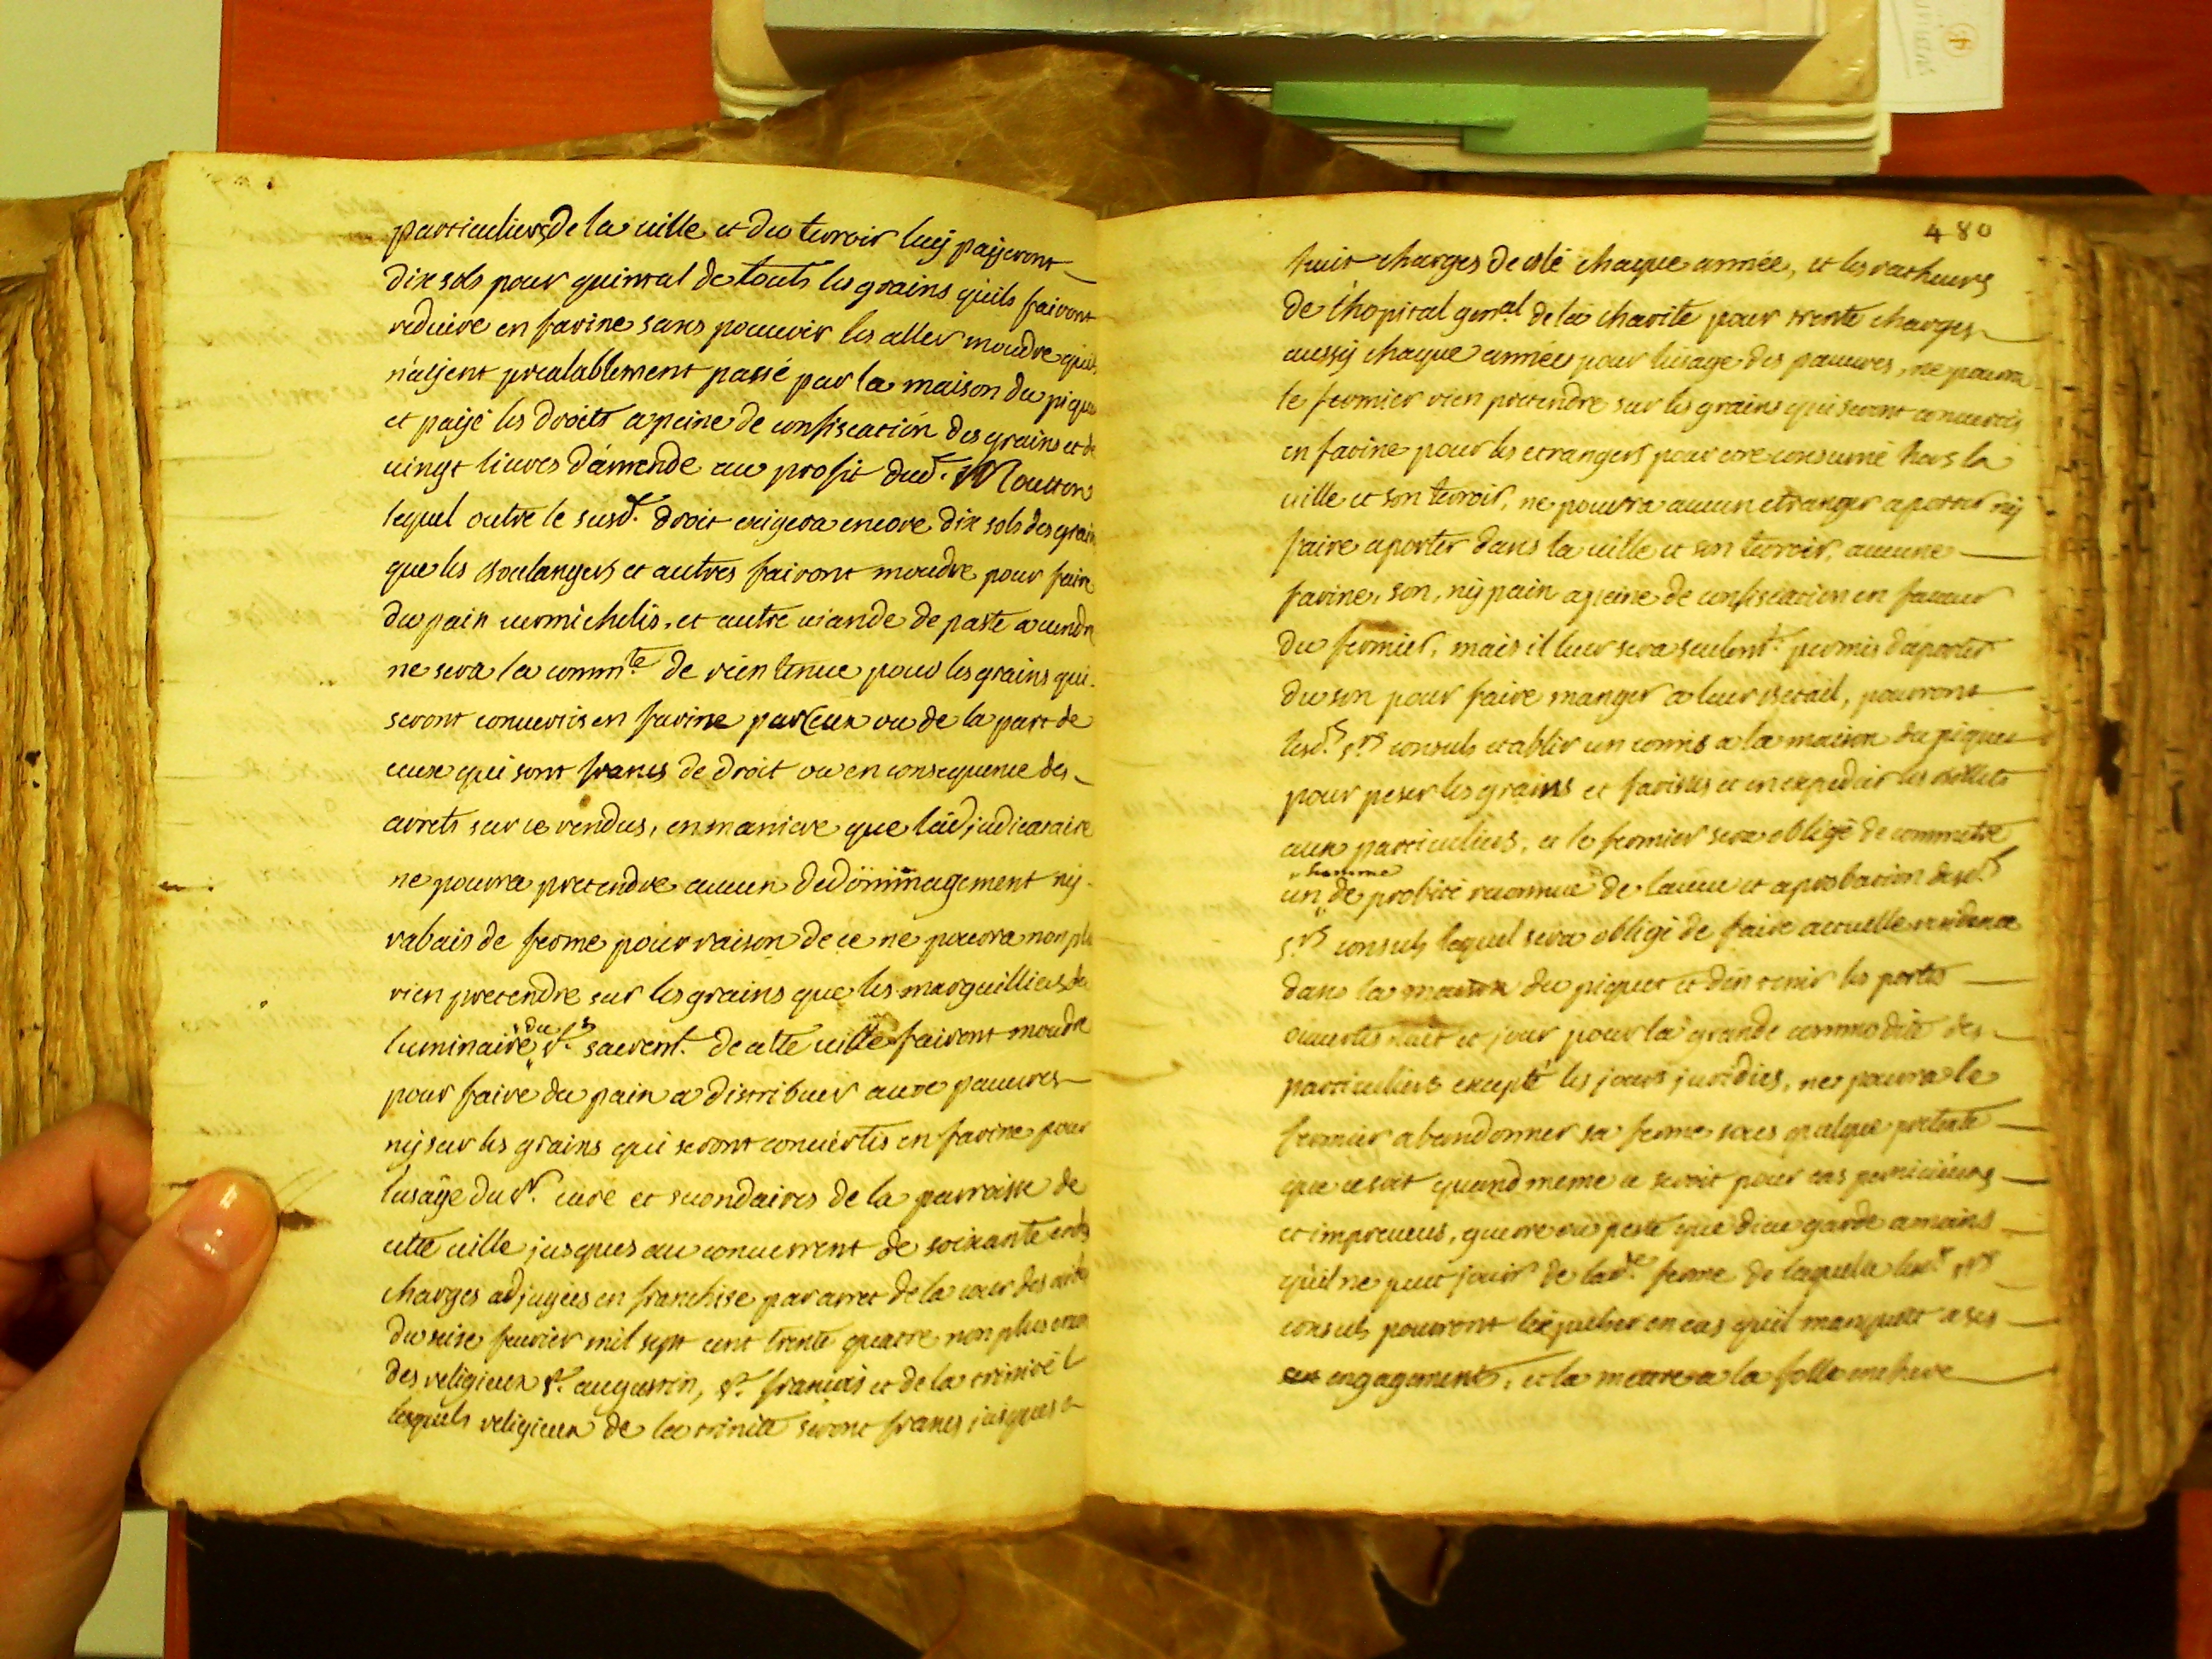 particuliers de la ville et du terroir luy payeront
dix sols pour quintal de touts les grains quils fairont
reduire en farine sans pouvoir les aller moudre quils
n'ayent prealablement passé par la maison du piquet
et payé les droits a peine de confiscation des grains et de
vingt livres d'amende au profit dud. Moutton
lequel outre le susd. droit exigera encore dix sols des grains
que les boulangers et autres fairont moudre pour faire
du pain vermichelis, et autre viande de paste a vendre
ne sera la commté de rien tenue pour les grains qui
seront convertis en farine par ceux ou de la part de
ceux qui sont francs de droit ou en consequence des
arrets sur ce rendus, en maniere que ladjudicataire
ne pourra pretendre aucun dedommagement ny
rabais de ferme pour raison de ce ne pourra non plus
rien pretendre sur les grains que les marguilliers du
luminaire du st. sacremt. de cette ville fairont moudre
pour faire du pain a distribuer aux pauvres
ny sur les grains qui seront convertis en farine pour
lusage du sr. curé et secondaires de la parroisse de
cette ville jusques au concurrent de soixante
charges adjugées en franchise par arret de la cour des aides
du seize fevrier mil sept cent trente quatre non plus
des religieux st. augustin, st. françois et de la trinité
lesquels religieux de la trinité seront francs jusques a
480
huit charges de blé chaque année, et les recteurs
de l'hopital genral de la charité pour trente charges
aussy chaque année pour lusage des pauvres, ne pourra
le fermier rien pretendre sur les grains qui seront convertis
en farine pour les etrangers pour etre consumé hors la
ville et son terroir, ne pourra aucun etranger aporter ny
faire aporter dans la ville et son terroir, aucune
farine, son, ny pain a peine de confiscation en faveur
du fermier, mais il leur sera seulemt. permis d'aporter
du son pour faire manger a leur betail, pourront
lesd. srs consuls etablir un comis a la maison du piquet
pour peser les grains et farines et en expedier les billets
aux particuliers, et le fermier sera obligé de commetre
homme
un de probité reconnue de laveu et aprobation desd.
srs consuls lequel sera obligé de faire actuelle residence
dans la maison du piquet et d'en tenir les portes
ouvertes nuit et jour pour la grande commodité des
particuliers excepté les jours juridics, ne pourra le
fermier abandonner sa ferme sous quelque pretexte
que ce soit quand meme ce seroit pour cas pernicieux
et impreveus, guerre ou peste que dieu garde a moins
qu'il ne peut jouir de lade. ferme de laquelle lesd. srs
consuls pourront lexpulser en cas qu'il manquat a ses
engagements, et la mettre a la folle enchere